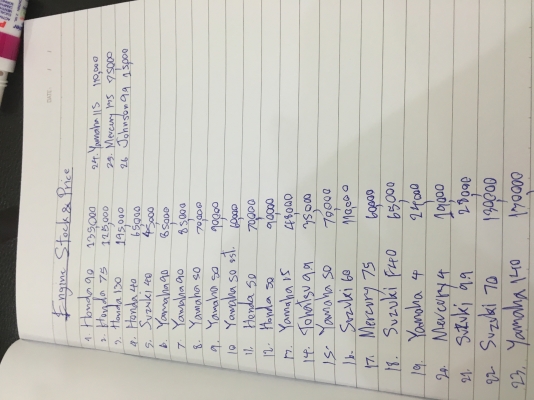 Engine Stock & Price
1. Honda 90 135,000
2. Honda 75 125,000
3. Honda 130 195,000
4. Honda 40 65,000
5. Suzuki 40 45,000
6. Yamaha 90 85,000
7. Yamaha 90 85,000
8. Yamaha 50 70,000
9. Yamaha 50 90,000
10. Yamaha 50 60,000
11. Honda 50 70,000
12. Honda 50 90,000
13. Yamaha 15 48,000
14. Johnson 9.9 35,000
15. Yamaha 50 70,000
16. Suzuki 60 110,000
17. Mercury 75 60,000
18. Suzuki 40 65,000
19. Yamaha 4 24,000
20. Mercury 4 19,000
21. Suzuki 9.9 28,000
22. Suzuki 70 130,000
23. Yamaha 140 130,000
24. Yamaha 115 110,000
25. Mercury 115 75,000
26. Johnson 9.9 15,000